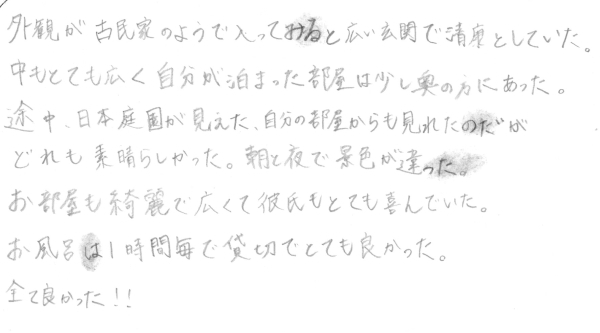 外観が古民家のようで入ってみると広い玄関で清凛としていた。
中もとても広く自分が泊まった部屋は少し奥の方にあった。
途中、日本庭園が見えた、自分の部屋からも見れたのだが
どれも素晴らしかった。朝と夜で景色が違った。
お部屋も綺麗で広くて彼氏もとても喜んでいた。
お風呂は1時間毎で貸切でとても良かった。
全て良かった!!